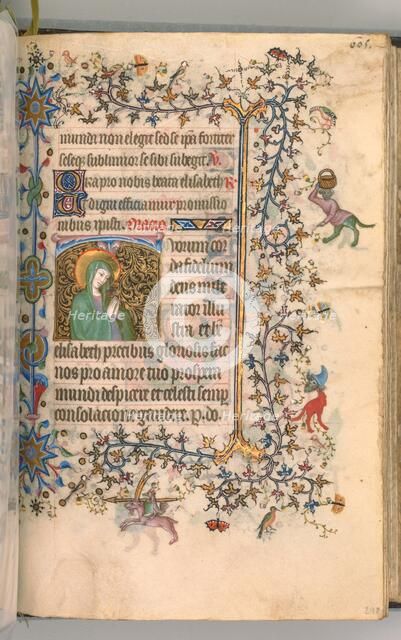 mundi non elegit sed se ipã fortiter
seseq; sublimior se sibi subegit. V.
Ora pro nobis beata elisabeth R
Ut digni efficiamur promissio
nibus xpisti. Oracio
uorum cor
da fidelium
deus mise
rator illu
stra et bte
elisabeth precibus gloriosis fac
nos pro amore tuo prospera
mundi despicere et celesti semp
consolacione gaudere. P. do.
Heritage Heritage
Heritage Heritage